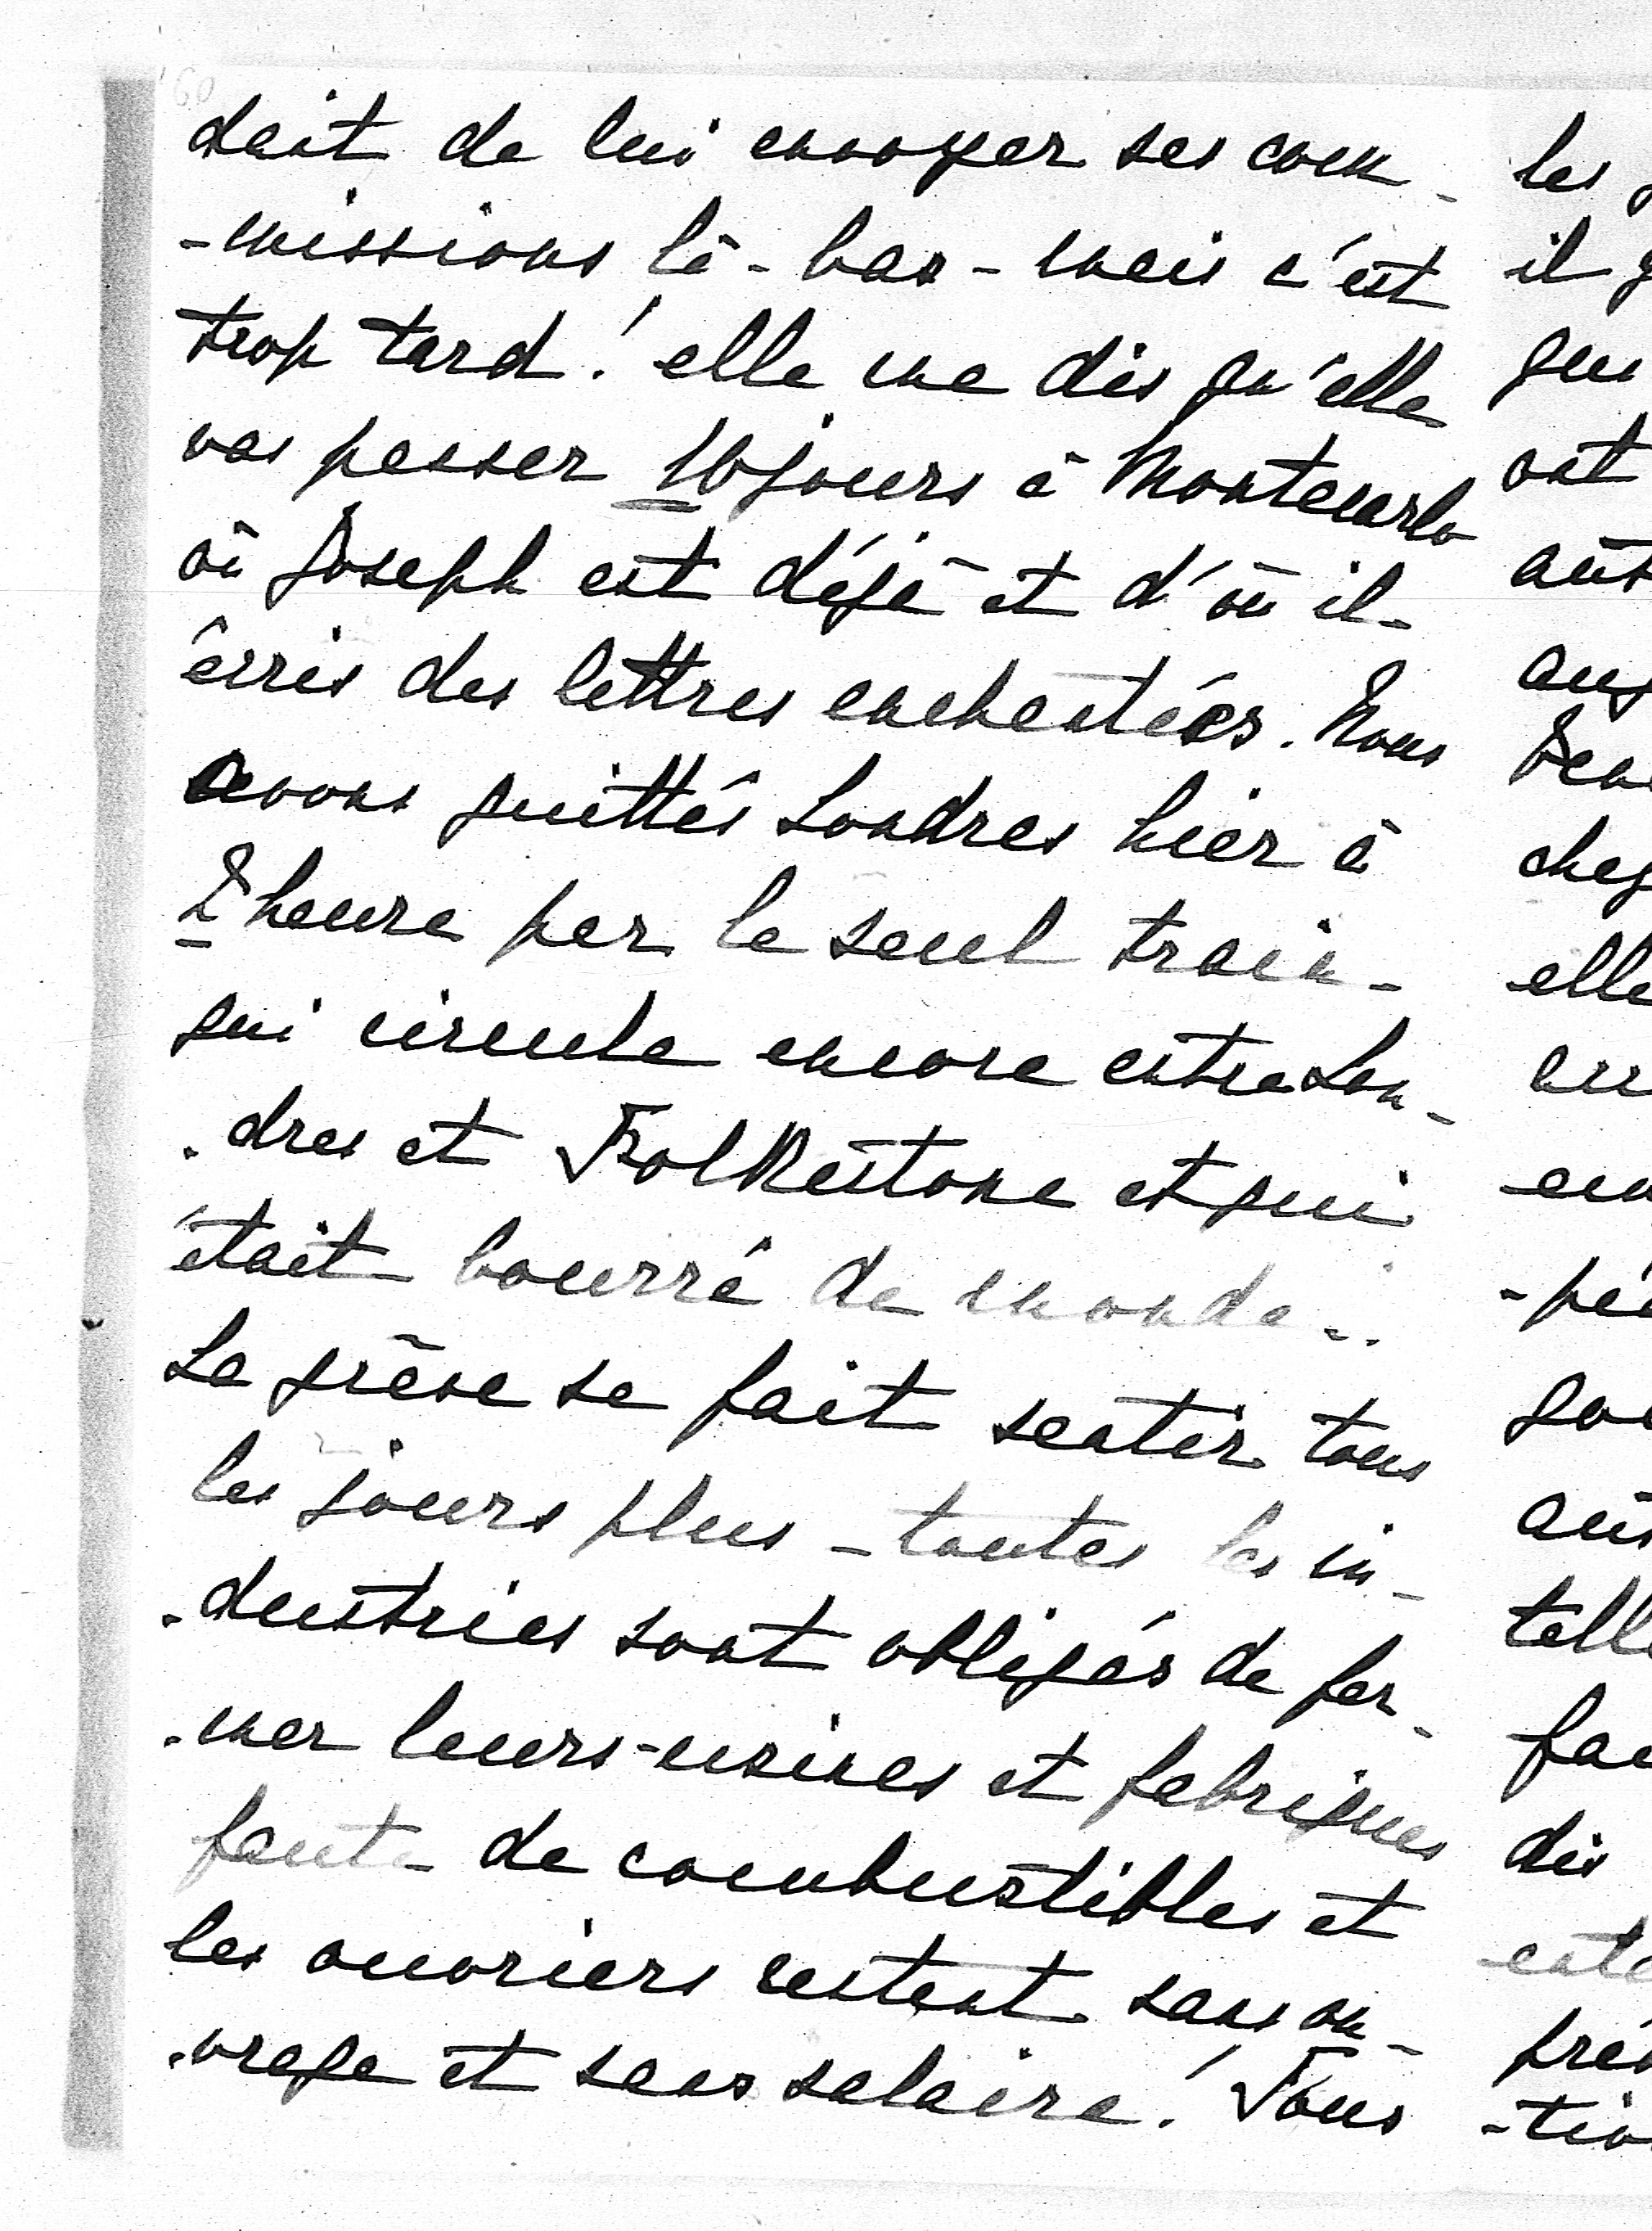 dait de lui envoyer ses com-
-missions là-bas - mais c'est
trop tard! elle me dis qu'elle
vas passer 10 jours à Montecarlo
où Joseph est déjà et d'où il
écris des lettres enchantées. Nous
avons quittés Londres hier à
2 heure par le seul train
qui circule encore entre Lon-
-dres et Folkestone et qui
était bourré de monde..
La grève se fait sentir tous
les jours plus - toutes les in-
-dustries sont obligés de fer-
-mer leurs usines et fabriques
faute de combustibles et
les ouvriers restent sans ou-
-vrage et sans salaire! Tous
les
il
que
ont
aut
elle
-tio